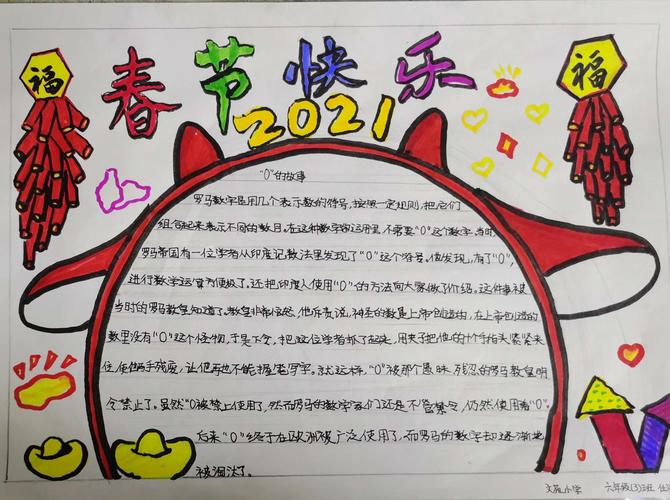 福
福
春节快乐
2021
"0"的故事
罗马数字是用几个表示数的符号,按照一定规则,把它们
组合起来表示不同的数目。在这种数字的运用里,不需要"0"这个数字。当时,
罗马帝国有一位学者从印度记数法里发现了"0"这个符号。他发现,有了"0",
进行数学运算方便极了。还把印度人使用"0"的方法向大家做了介绍。这件事被
当时的罗马教皇知道了。教皇非常恼怒,他斥责说,神圣的数是上帝创造的,在上帝创造的
数里没有"0"这个怪物,于是下令,把这位学者抓了起来,用夹子把他的十个手指头紧紧夹
住,使他两手残废,让他再也不能握笔写字。就这样,"0"被那个愚昧、残忍的罗马教皇明
令禁止了。虽然"0被禁止使用了,然而罗马的数学家们还是不管禁令,仍然使用着"0"。
后来"0"终于在欧洲被广泛使用了,而罗马的数字却逐渐地
被淘汰了。
小学 六年级(3)班